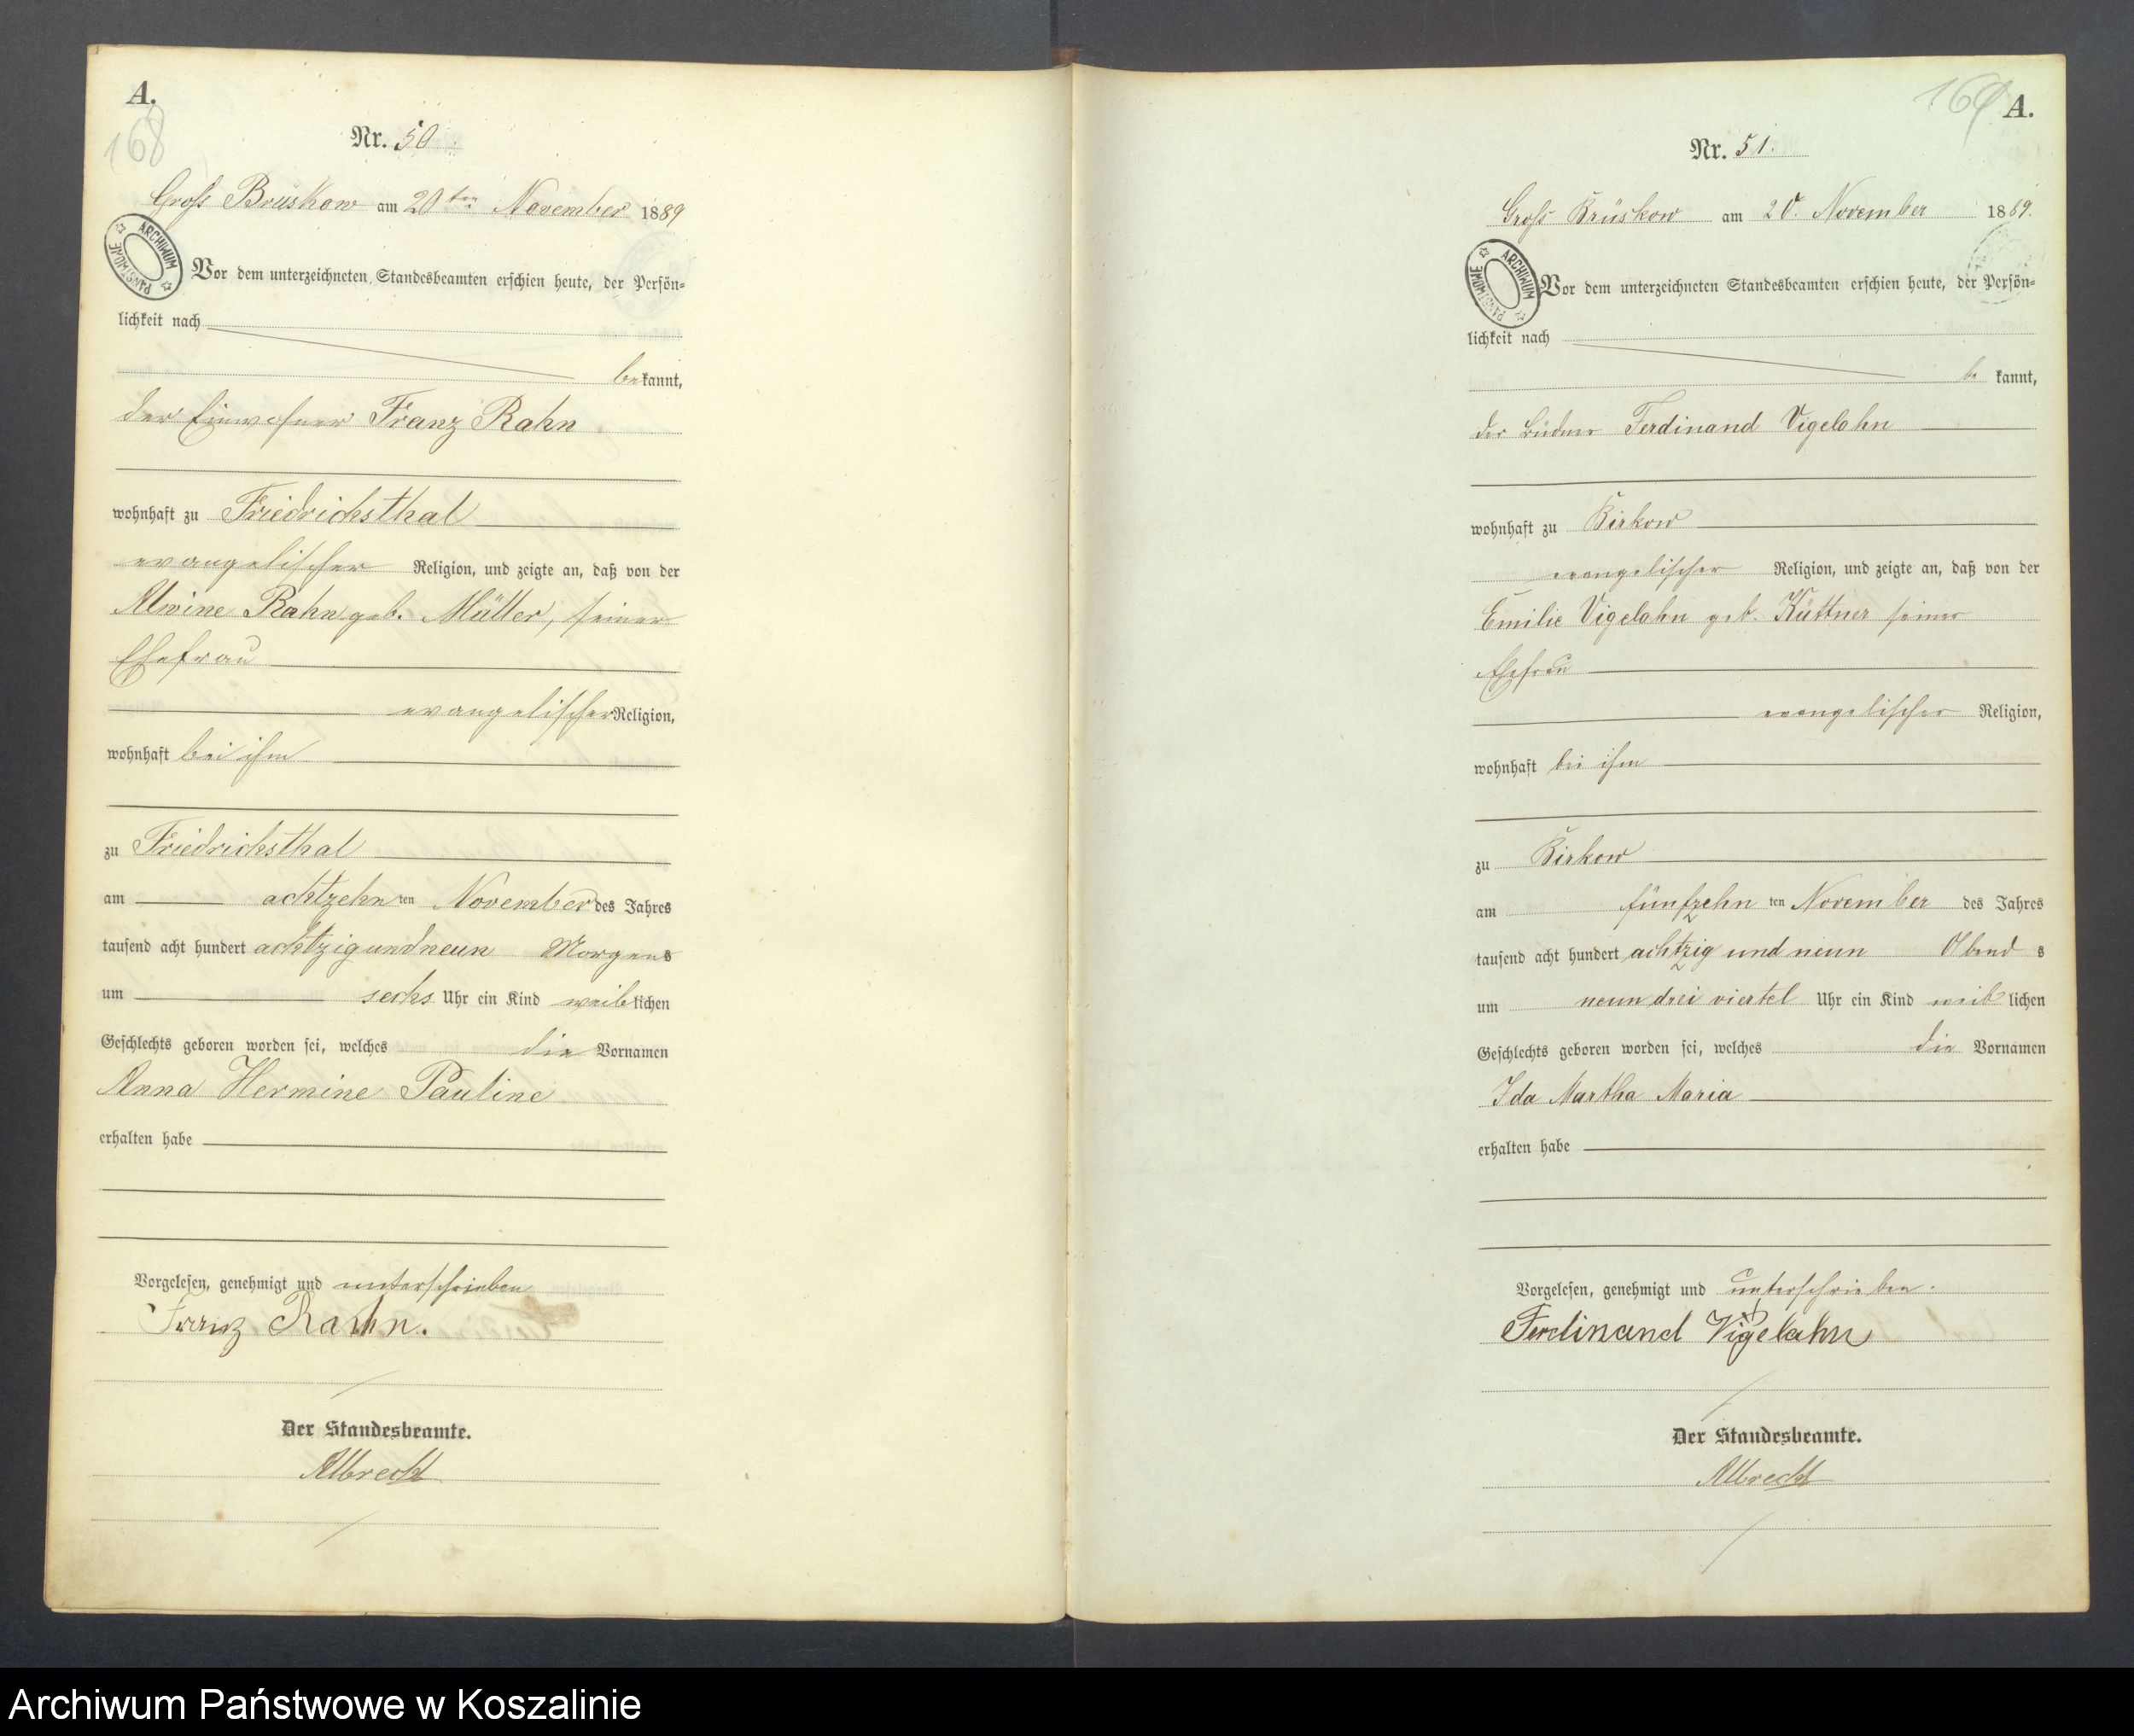 A.
168
Nr. 50
Groß Brüskow am 20ten November 1889
ARCHIWUM PAŃSTWOWE
Vor dem unterzeichneten Standesbeamten erschien heute, der Persön-
lichkeit nach
bekannt,
der Einwohner Franz Rahn
wohnhaft zu Friedrichsthal
evangelischer Religion, und zeigte an, daß von der
Alwine Rahn geb. Müller, seiner
Ehefrau
evangelischer Religion,
wohnhaft bei ihm
zu Friedrichsthal
am achtzehn ten November des Jahres
tausend acht hundert achtzigundneun Morgens
um sechs Uhr ein Kind weiblichen
Geschlechts geboren worden sei, welches die Vornamen
Anna Hermine Pauline
erhalten habe
Vorgelesen, genehmigt und unterschrieben
Franz Rahn.
Der Standesbeamte.
Albrecht
169
A.
Nr. 51.
Groß Brüskow am 20. November 1889.
ARCHIWUM PAŃSTWOWE
Vor dem unterzeichneten Standesbeamten erschien heute, der Persön-
lichkeit nach
be kannt,
der Büdner Ferdinand Vigelahn
wohnhaft zu Birkow
evangelischer Religion, und zeigte an, daß von der
Emilie Vigelahn geb. Küttner seiner
Ehefrau
evangelischer Religion,
wohnhaft bei ihm
zu Birkow
am fünfzehn ten November des Jahres
tausend acht hundert achtzig und neun Abend s
um neun drei viertel Uhr ein Kind weib lichen
Geschlechts geboren worden sei, welches die Vornamen
Ida Martha Maria
erhalten habe
Vorgelesen, genehmigt und unterschrieben.
Ferdinand Vigelahn
Der Standesbeamte.
Albrecht
Archiwum Państwowe w Koszalinie